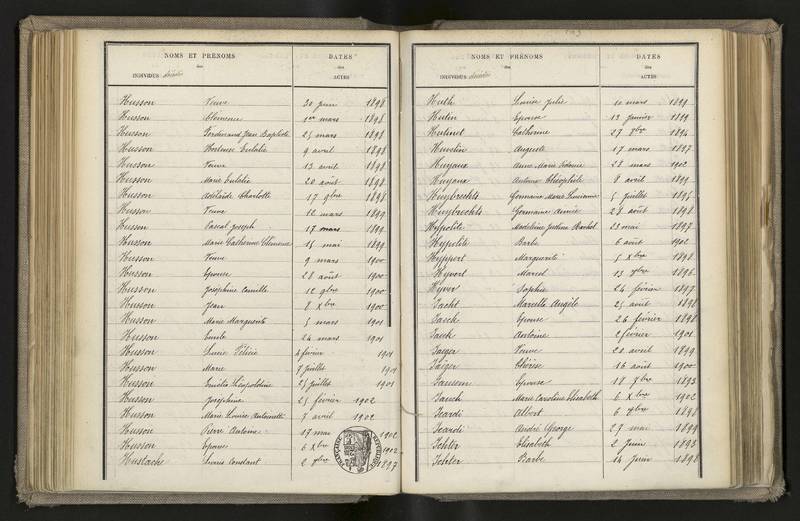 NOMS ET PRÉNOMS DATES
des des
INDIVIDUS décédés ACTES
Husson Veuve 20 juin 1898
Husson Clémence 1er mars 1898
Husson Ferdinand Jean Baptiste 25 mars 1898
Husson Hortense Eulalie 9 avril 1898
Husson Veuve 13 avril 1898
Husson Marie Eulalie 20 août 1898
Husson Adélaïde Charlotte 17 9bre 1898
Husson Veuve 12 mars 1899
Husson Pascal Joseph 17 mars 1899
Husson Marie Catherine Clémence 15 mai 1899
Husson Veuve 9 mars 1900
Husson Epouse 28 août 1900
Husson Joséphine Camille 12 9bre 1900
Husson Jean 8 Xbre 1900
Husson Marie Marguerite 5 mars 1901
Husson Emile 24 mars 1901
Husson Lucie Félicie 4 février 1901
Husson Marie 7 juillet 1901
Husson Emélie Léopoldine 25 juillet 1901
Husson Joséphine 25 février 1902
Husson Marie Louise Antoinette 7 avril 1902
Husson Pierre Antoine 17 mai 1902
Husson Epouse 6 Xbre 1902
Hustach Louis Constant 2 1897
NOMS ET PRÉNOMS DATES
des des
INDIVIDUS décédés ACTES
Huth Louise Julie 10 mars 1899
Hutin Epouse 13 janvier 1899
Hutinet Catherine 27 1894
Auguste 17 mars 1897
Huyaux Anne Marie 28 mars 1902
Huyaux Antoine Théophile 8 avril 1899
Huybrechts Germaine Marie 5 juillet 1895
Huybrechts Germaine Aimée 28 août 1898
Hypolite Madeleine Justine Rachel 23 mai 1897
Hypolite Barbe 6 août 1902
Hyppert Marguerite 5 Xbre 1898
Hyvert Marcel 13 1896
Hyver Sophie 24 février 1897
Jacht Marcelle Angèle 25 avril 1898
Jaeck Epouse 26 février 1898
Jauk Antoine 2 février 1901
Jaeger Veuve 20 avril 1899
Jaëger Thérèse 16 août 1900
Epouse 18 1893
Jauch Marie Caroline Elisabeth 6 Xbre 1902
Icardi Albert 6 1898
Icardi André George 27 mai 1899
Ichter Elisabeth 2 juin 1893
Ichter Barbe 14 juin 1898